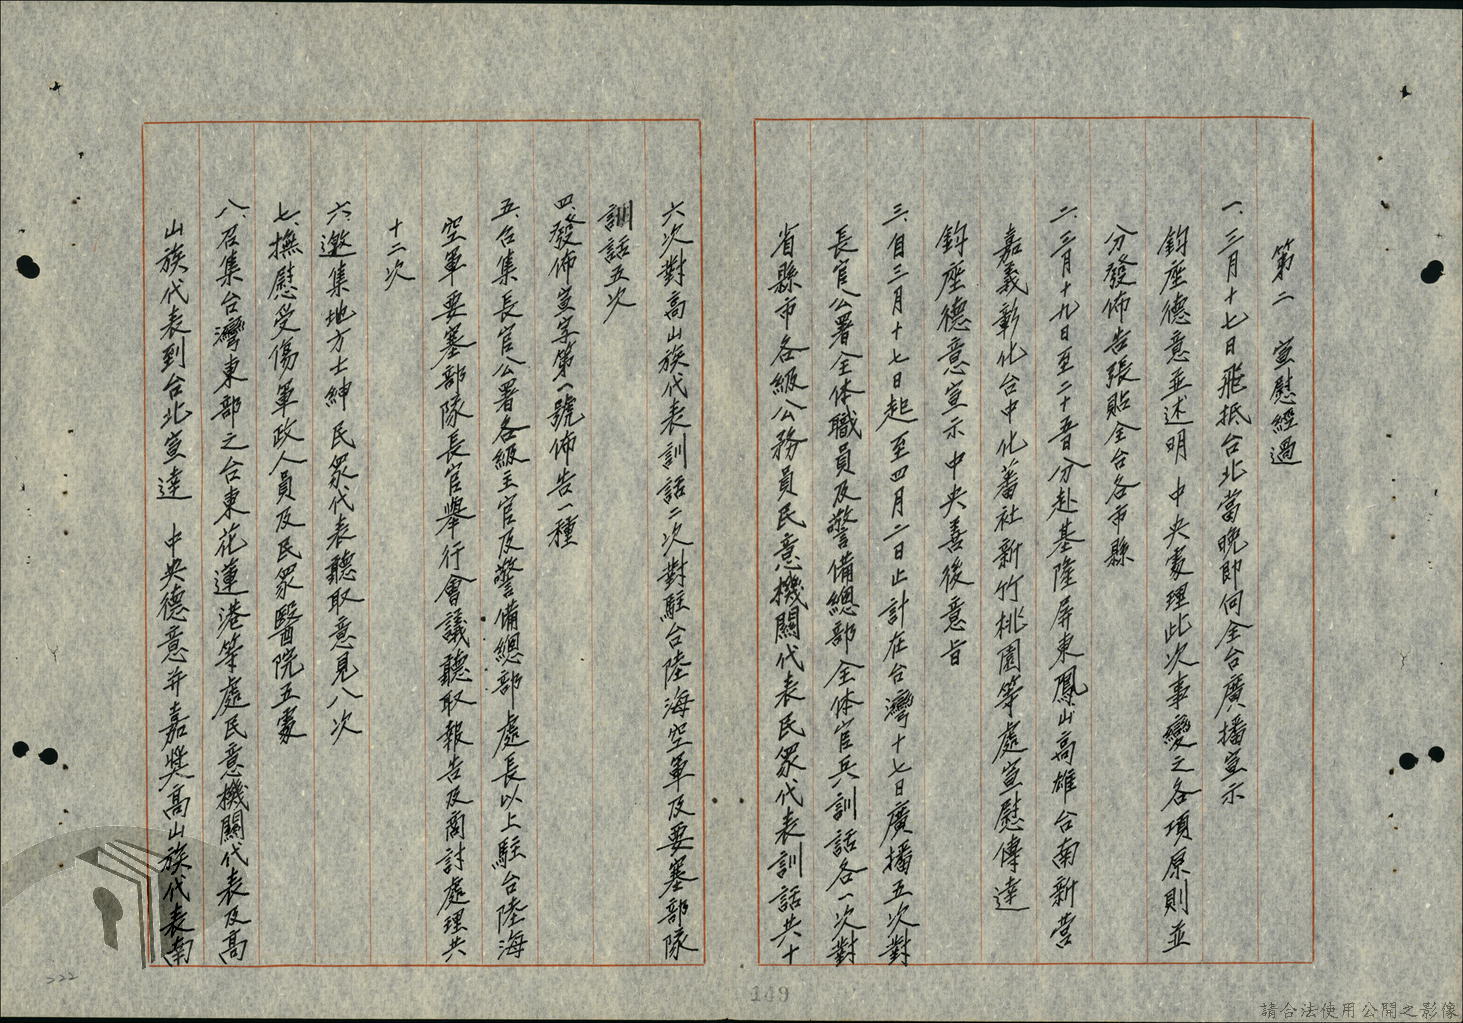 第二　宣慰經過
一、三月十七日飛抵台北當晚即向全台廣播宣示
鈞座德意並述明　中央處理此次事變之各項原則並
分發佈告張貼全台各市縣
二、三月十九日至二十五日分赴基隆屏東鳳山高雄台南新營
嘉義彰化台中化蕃社新竹桃園等處宣慰傳達
鈞座德意宣示中央善後意旨
三、自三月十七日起至四月二日止計在台灣十七日廣播五次對
長官公署全体職員及警備總部全体官兵訓話各一次對
省縣市各級公務員民意機關代表民眾代表訓話共十
六次對高山族代表訓話二次對駐台陸海空軍及要塞部隊
訓話五次
四、發佈宣字第一號佈告一種
五、召集長官公署各級主官及警備總部處長以上駐台陸海
空軍要塞部隊長官舉行會議聽取報告及商討處理共
十二次
六、邀集地方士紳民眾代表聽取意見八次
七、撫慰受傷軍政人員及民眾醫院五處
八、召集台灣東部之台東花蓮港等處民意機關代表及高
山族代表到台北宣達　中央德意并嘉獎高山族代表南
149
222
請合法使用公開之影像